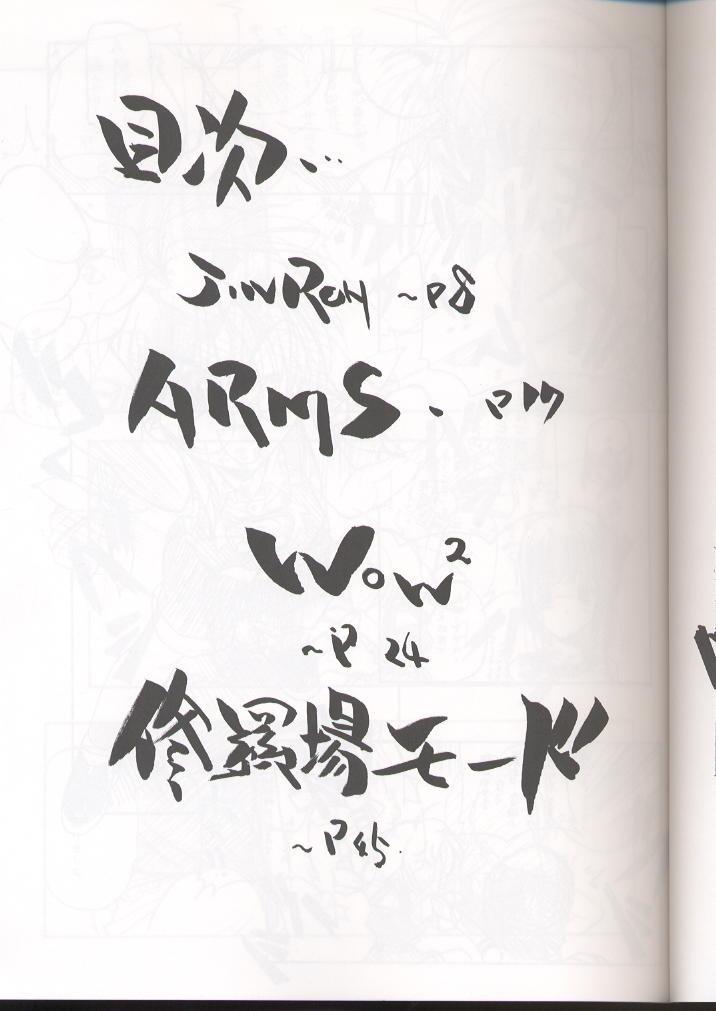 目次…
JINROH ~P8
ARMS. P17
WOW²
~P 24
修羅場モード
~P45.